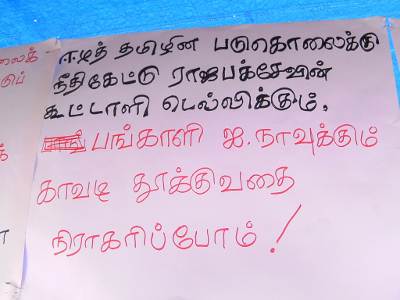 ஈழத் தமிழின படுகொலைக்கு
நீதிகேட்டு ராஜபக்சேவின்
கூட்டாளி டெல்விக்கும்,
பங்காளி ஐ.நாவுக்கும்
காவடி தூக்குவதை
நிராகரிப்போம்!